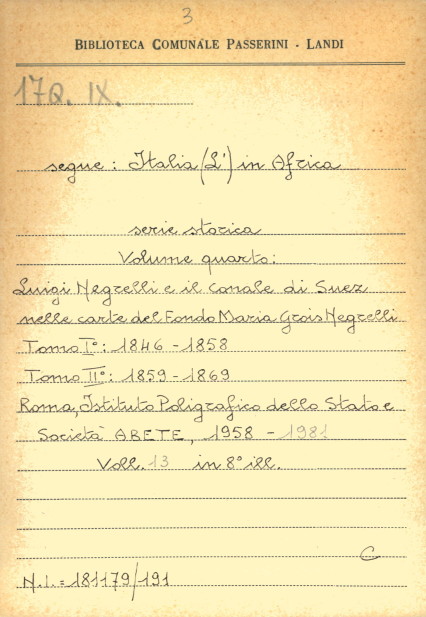 3
BIBLIOTECA COMUNALE PASSERINI - LANDI
17Q. IX.
segue: Italia (L') in Africa
serie storica
Volume quarto:
Luigi Negrelli e il Canale di Suez
nelle carte del Fondo Maria Grois Negrelli
Tomo I°: 1846 - 1858
Tomo II°: 1859 - 1869
Roma, Istituto Poligrafico dello Stato e
Società ABETE, 1958 - 1981
Voll. 13 in 8° ill.
C
N.I. = 181179/191